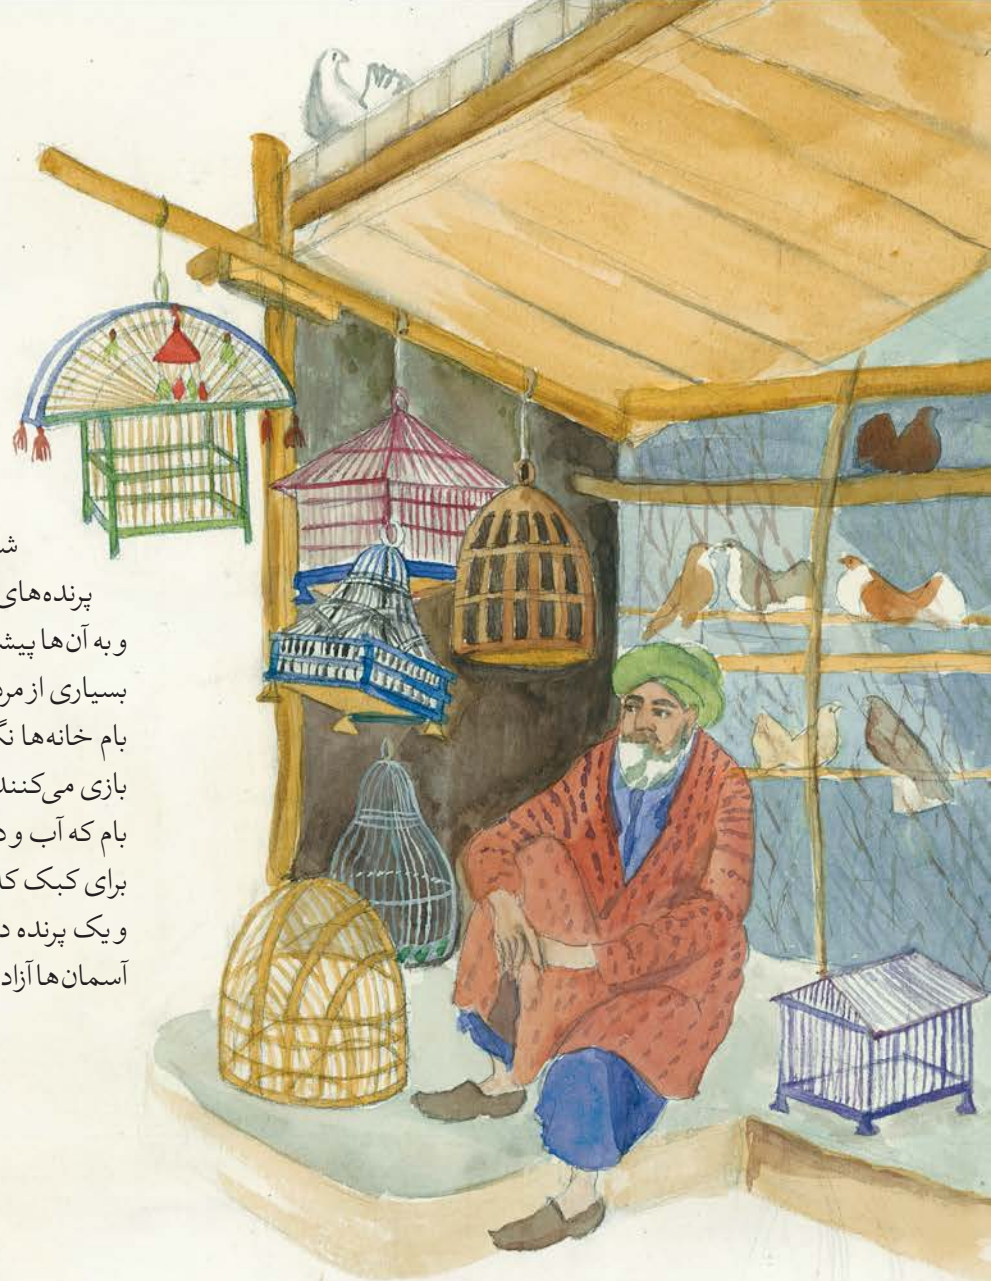 پرنده‌های
و به آن‌ها
بسیاری از
بام خانه‌ها
بازی می‌کنند
بام که آب و
برای کبک که
و یک پرنده
آسمان‌ها آزاد